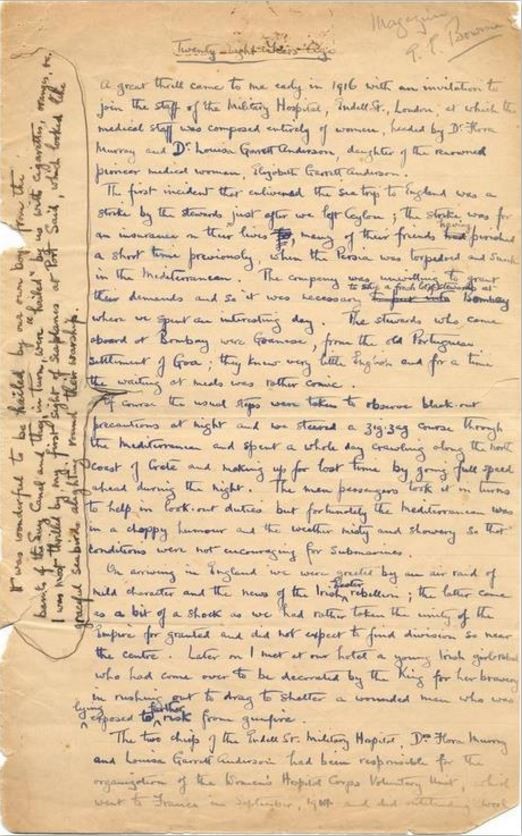 Magazine
Twenty-eight Years Ago
A great thrill came to me early in 1916 with an invitation to
join the staff of the Military Hospital, Endell St., London, at which the
medical staff was composed entirely of women, headed by Dr Flora
Murray and Dr Louisa Garrett Anderson, daughter of the renowned
pioneer medical woman, Elizabeth Garrett Anderson.
The first incident that enlivened the sea trip to England was a
strike by the stewards just after we left Ceylon; the strike was for
an insurance on their lives, many of their friends having perished
a short time previously, when the Persia was torpedoed and sunk
in the Mediterranean. The company was unwilling to grant
their demands and so it was necessary to ship a fresh lot of stewards at Bombay
where we spent an interesting day. The stewards who came
aboard at Bombay were Goanese, from the old Portuguese
settlement of Goa; they knew very little English and for a time
the waiting at meals was rather comic.
It was wonderful to be hailed by our own boys from the
banks of the Suez Canal and they in turn were "hailed" by us with cigarettes, oranges, etc.
I was most thrilled by my first sight of seaplanes at Port Said, which looked like
graceful seabirds alighting round their warship.
Of course the usual steps were taken to observe black-out
precautions at night and we steered a zig-zag course through
the Mediterranean and spent a whole day crawling along the north
coast of Crete and making up for lost time by going full speed
ahead during the night. The men passengers took it in turns
to help in look-out duties but fortunately the Mediterranean was
in a choppy humour and the weather misty and showery so that
conditions were not encouraging for submarines.
On arriving in England we were greeted by an air raid of
mild character and the news of the Irish Easter rebellion; the latter came
as a bit of a shock as we had rather taken the unity of the
Empire for granted and did not expect to find division so near
the centre. Later on I met at our hotel a young Irish girl
who had come over to be decorated by the King for her bravery
in rushing out to drag to shelter a wounded man who was
lying exposed to further risk from gunfire.
The two chiefs of the Endell St. Military Hospital, Drs Flora Murray
and Louisa Garrett Anderson had been responsible for the
organization of the Women's Hospital Corps Voluntary Unit, which
went to France in September, 1914 and did outstanding work